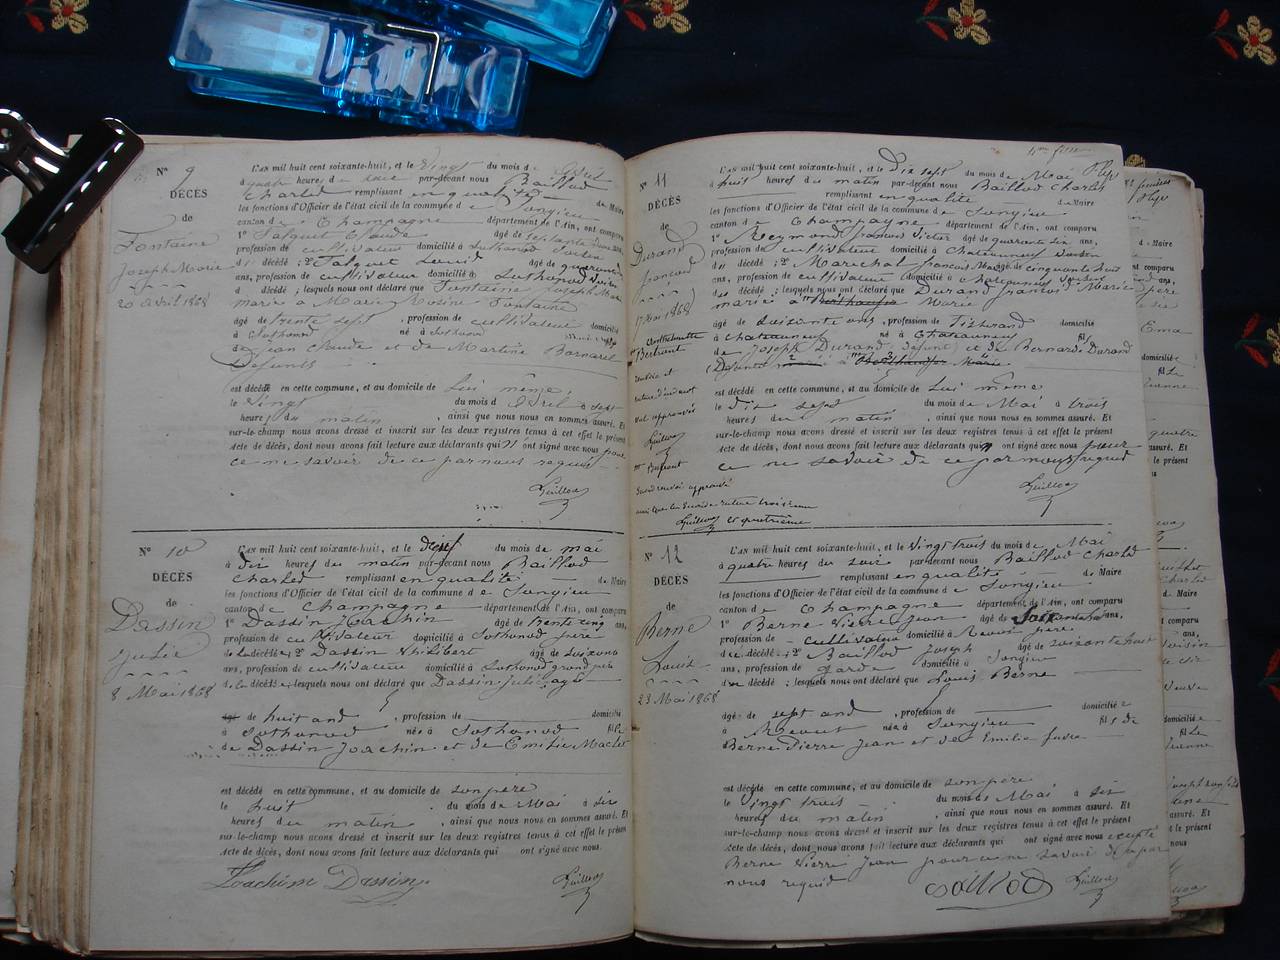 N° 9
DÉCÈS
de
Fontaine
Joseph Marie
20 Avril 1868
L'AN mil huit cent soixante-huit, et le Vingt du mois d' Avril
à quatre heures du soir par-devant nous Baillod
Charles remplissant en qualité de Maire
les fonctions d'Officier de l'état civil de la commune de Songieu
canton de Champagne département de l'Ain, ont comparu
1° Falquet Claude âgé de septante deux ans,
profession de cultivateur domicilié à Sothonod voisin
du décédé ; 2° Falquet Louis âgé de quarante
ans, profession de cultivateur domicilié à Sothonod voisin
du décédé ; lesquels nous ont déclaré que Fontaine Joseph Marie
marié à Marie Rosine Fontaine
âgé de trente sept , profession de cultivateur domicilié
à Sothonod né à Sothonod
de Jean Claude et de Martine Bornarel
Défunts
est décédé en cette commune, et au domicile de lui même
le Vingt du mois d' Avril à sept
heures du matin , ainsi que nous nous en sommes assuré. Et
sur-le-champ nous avons dressé et inscrit sur les deux registres tenus à cet effet le présent
acte de décès, dont nous avons fait lecture aux déclarants qui n' ont signé avec nous pour
ce ne savoir de ce par nous requis
Guillod
N° 10
DÉCÈS
de
Dassin
Julie
8 Mai 1868
L'AN mil huit cent soixante-huit, et le du mois de mai
à dix heures du matin par-devant nous Baillod
Charles remplissant en qualité de Maire
les fonctions d'Officier de l'état civil de la commune de Songieu
canton de Champagne département de l'Ain, ont comparu
1° Dassin Joachin âgé de trente cinq ans,
profession de cultivateur domicilié à Sothonod père
de la décédée ; 2° Dassin Philibert âgé de soixante
ans, profession de cultivateur domicilié à Sothonod grand père
de la décédée ; lesquels nous ont déclaré que Dassin Julie âgée
âgé de huit ans , profession de domicilié
à Sothonod née à Sothonod fille
de Dassin Joachin et de Emilie Maclet
est décédé en cette commune, et au domicile de son père
le huit du mois de Mai à six
heures du matin , ainsi que nous nous en sommes assuré. Et
sur-le-champ nous avons dressé et inscrit sur les deux registres tenus à cet effet le présent
acte de décès, dont nous avons fait lecture aux déclarants qui ont signé avec nous.
Joachim Dassin Guillod
N° 11
DÉCÈS
de
Durand
François
17 Mai 1868
Bertrand
Guillod
Guillod et quatrième
L'AN mil huit cent soixante-huit, et le Dix sept du mois de Mai
à huit heures du matin par-devant nous Baillod Charles
remplissant en qualité de Maire
les fonctions d'Officier de l'état civil de la commune de Songieu
canton de Champagne département de l'Ain, ont comparu
1° Reymond François Victor âgé de quarante six ans,
profession de cultivateur domicilié à Chateauneuf voisin
du décédé ; 2° Marechal François Marie âgé de cinquante huit
ans, profession de cultivateur domicilié à Chateauneuf voisin
du décédé ; lesquels nous ont déclaré que Durand François Marie
marié à Marie
âgé de soixante ans , profession de Tisserand domicilié
à Chateauneuf né à Chateauneuf fils
de Joseph Durand Défunt et de Bernarde Durand
Défunte
est décédé en cette commune, et au domicile de Lui même
le Dix sept du mois de Mai à trois
heures du matin , ainsi que nous nous en sommes assuré. Et
sur-le-champ nous avons dressé et inscrit sur les deux registres tenus à cet effet le présent
acte de décès, dont nous avons fait lecture aux déclarants qui n' ont signé avec nous pour
ce ne savoir de ce par nous requis
Guillod
N° 12
DÉCÈS
de
Berne
Louis
23 Mai 1868
L'AN mil huit cent soixante-huit, et le Vingt trois du mois de Mai
à quatre heures du soir par-devant nous Baillod Charles
remplissant en qualité de Maire
les fonctions d'Officier de l'état civil de la commune de Songieu
canton de Champagne département de l'Ain, ont comparu
1° Berne Pierre Jean âgé de ans,
profession de cultivateur domicilié à père
du décédé ; 2° Baillod Joseph âgé de soixante huit
ans, profession de garde domicilié à Songieu
du décédé ; lesquels nous ont déclaré que Louis Berne
âgé de sept ans , profession de domicilié
à né à Songieu fils de
Berne Pierre Jean et de Emilie
est décédé en cette commune, et au domicile de son père
le Vingt trois du mois de Mai à six
heures du matin , ainsi que nous nous en sommes assuré. Et
sur-le-champ nous avons dressé et inscrit sur les deux registres tenus à cet effet le présent
acte de décès, dont nous avons fait lecture aux déclarants qui ont signé avec nous excepté
Berne Pierre Jean pour ce ne savoir de ce par
nous requis Baillod Guillod